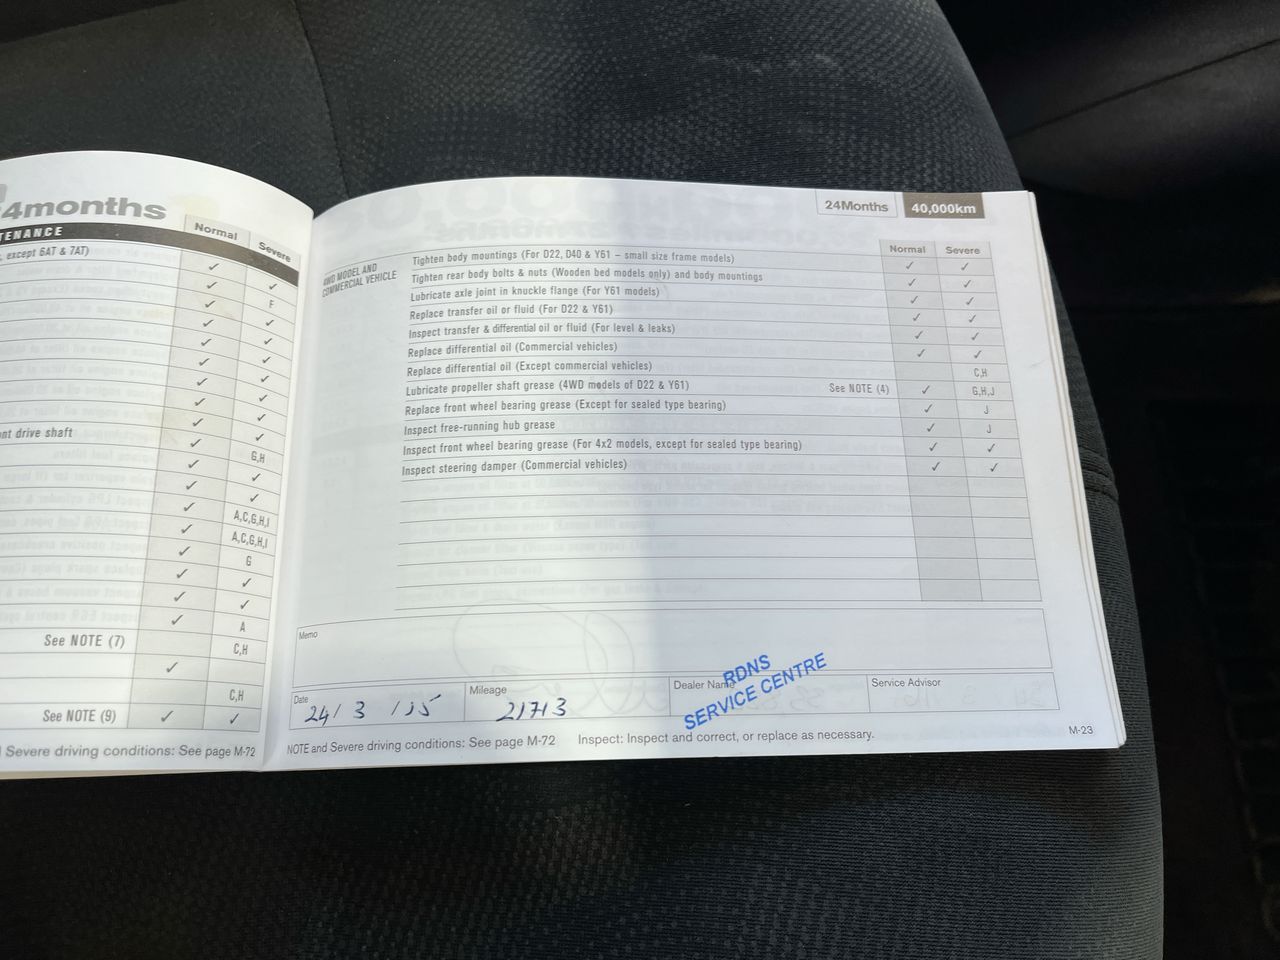 4months
TENANCE
Normal
Severe
, except 6AT & 7AT)
✓ ✓
✓ F
✓ ✓
✓ ✓
✓ ✓
✓ ✓
✓ ✓
✓ ✓
✓ ✓
nt drive shaft
✓ G,H
✓ ✓
✓ ✓
✓ A,C,G,H,I
✓ A,C,G,H,I
✓ G
✓ ✓
✓ ✓
✓ A
See NOTE (7) C,H
✓
C,H
See NOTE (9) ✓ ✓
Severe driving conditions: See page M-72
24Months 40,000km
Normal Severe
4WD MODEL AND
COMMERCIAL VEHICLE
Tighten body mountings (For D22, D40 & Y61 – small size frame models) ✓ ✓
Tighten rear body bolts & nuts (Wooden bed models only) and body mountings ✓ ✓
Lubricate axle joint in knuckle flange (For Y61 models) ✓ ✓
Replace transfer oil or fluid (For D22 & Y61) ✓ ✓
Inspect transfer & differential oil or fluid (For level & leaks) ✓ ✓
Replace differential oil (Commercial vehicles) ✓ ✓
Replace differential oil (Except commercial vehicles) C,H
Lubricate propeller shaft grease (4WD models of D22 & Y61) See NOTE (4) ✓ G,H,J
Replace front wheel bearing grease (Except for sealed type bearing) ✓ J
Inspect free-running hub grease ✓ J
Inspect front wheel bearing grease (For 4x2 models, except for sealed type bearing) ✓ ✓
Inspect steering damper (Commercial vehicles) ✓ ✓
Memo
Date
24/3/15
Mileage
21713
Dealer Name
RDNS
SERVICE CENTRE
Service Advisor
NOTE and Severe driving conditions: See page M-72 Inspect: Inspect and correct, or replace as necessary.
M-23